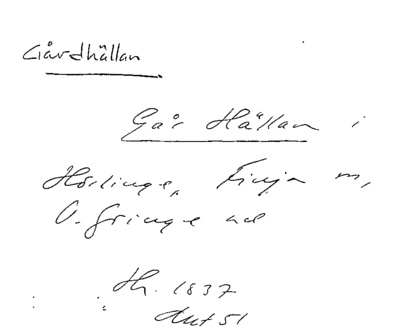 Gårdhällan
Går Hällan i
Hörlinge, Finja m,
V. Göinge hd
Th. 1837
dat 51